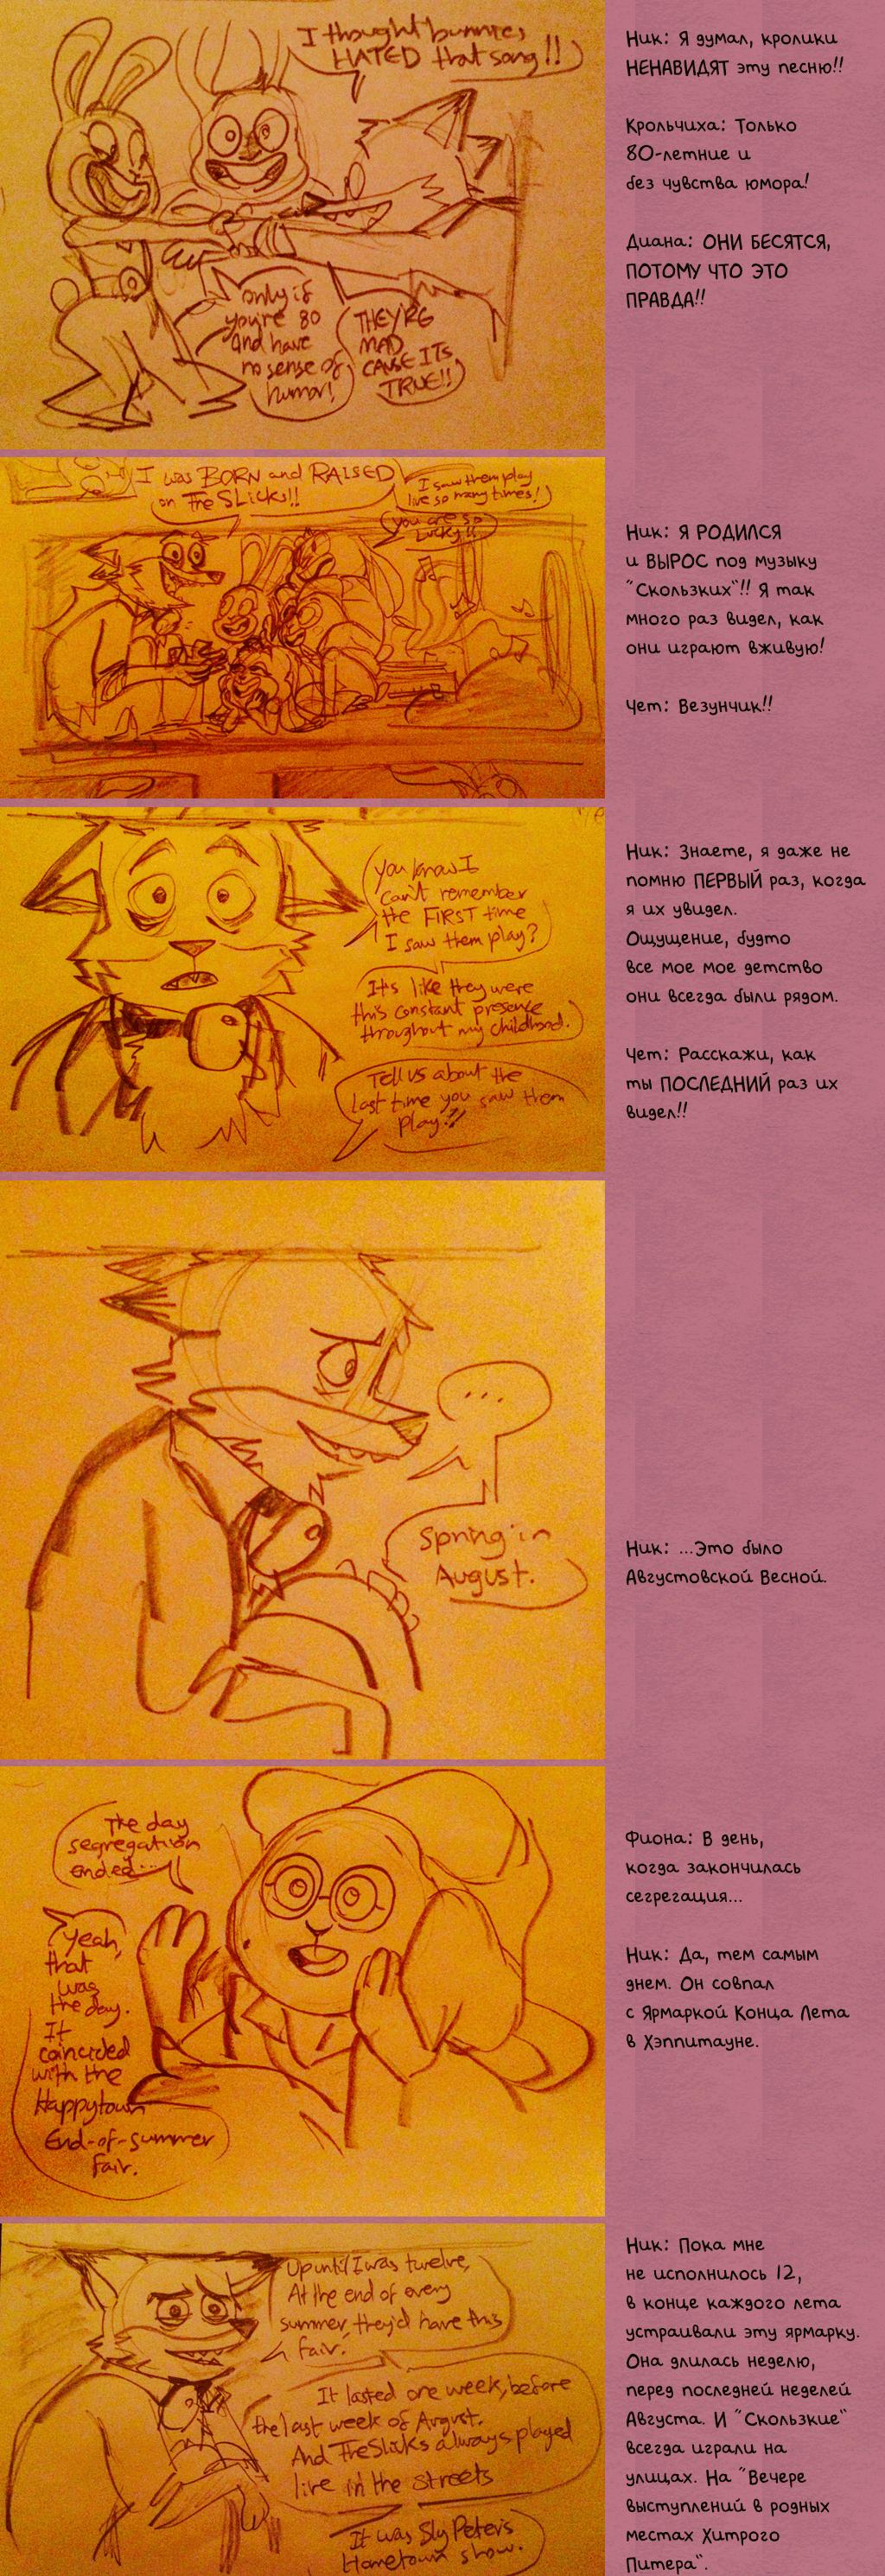 I thought bunnies
HATED that song!!
only if
you're 80
and have
no sense of
humor!
THEY'RE
MAD
CAUSE ITS
TRUE!!
Ник: Я думал, кролики
НЕНАВИДЯТ эту песню!!
Крольчиха: Только
80-летние и
без чувства юмора!
Диана: ОНИ БЕСЯТСЯ,
ПОТОМУ ЧТО ЭТО
ПРАВДА!!
I was BORN and RAISED
on The Slicks!!
I saw them play
live so many times!
you are so
Lucky!!
Ник: Я РОДИЛСЯ
и ВЫРОС под музыку
"Скользких"!! Я так
много раз видел, как
они играют вживую!
Чет: Везунчик!!
you know I
can't remember
the FIRST time
I saw them play?
It's like they were
this constant presence
throughout my childhood.
Tell us about the
last time you saw them
play!!
Ник: Знаете, я даже не
помню ПЕРВЫЙ раз, когда
я их увидел.
Ощущение, будто
все мое мое детство
они всегда были рядом.
Чет: Расскажи, как
ты ПОСЛЕДНИЙ раз их
видел!!
...
Spring in
August.
Ник: ...Это было
Августовской Весной.
The day
segregation
ended...
yeah,
that
was
the day.
It
coincided
with the
Happytown
End-of-summer
fair.
Фиона: В день,
когда закончилась
сегрегация...
Ник: Да, тем самым
днем. Он совпал
с Ярмаркой Конца Лета
в Хэппитауне.
Up until I was twelve,
At the end of every
summer, they'd have this
fair.
It lasted one week, before
the last week of August.
And The Slicks always played
live in the streets
It was Sly Peter's
Hometown show.
Ник: Пока мне
не исполнилось 12,
в конце каждого лета
устраивали эту ярмарку.
Она длилась неделю,
перед последней неделей
Августа. И "Скользкие"
всегда играли на
улицах. На "Вечере
выступлений в родных
местах Хитрого
Питера".